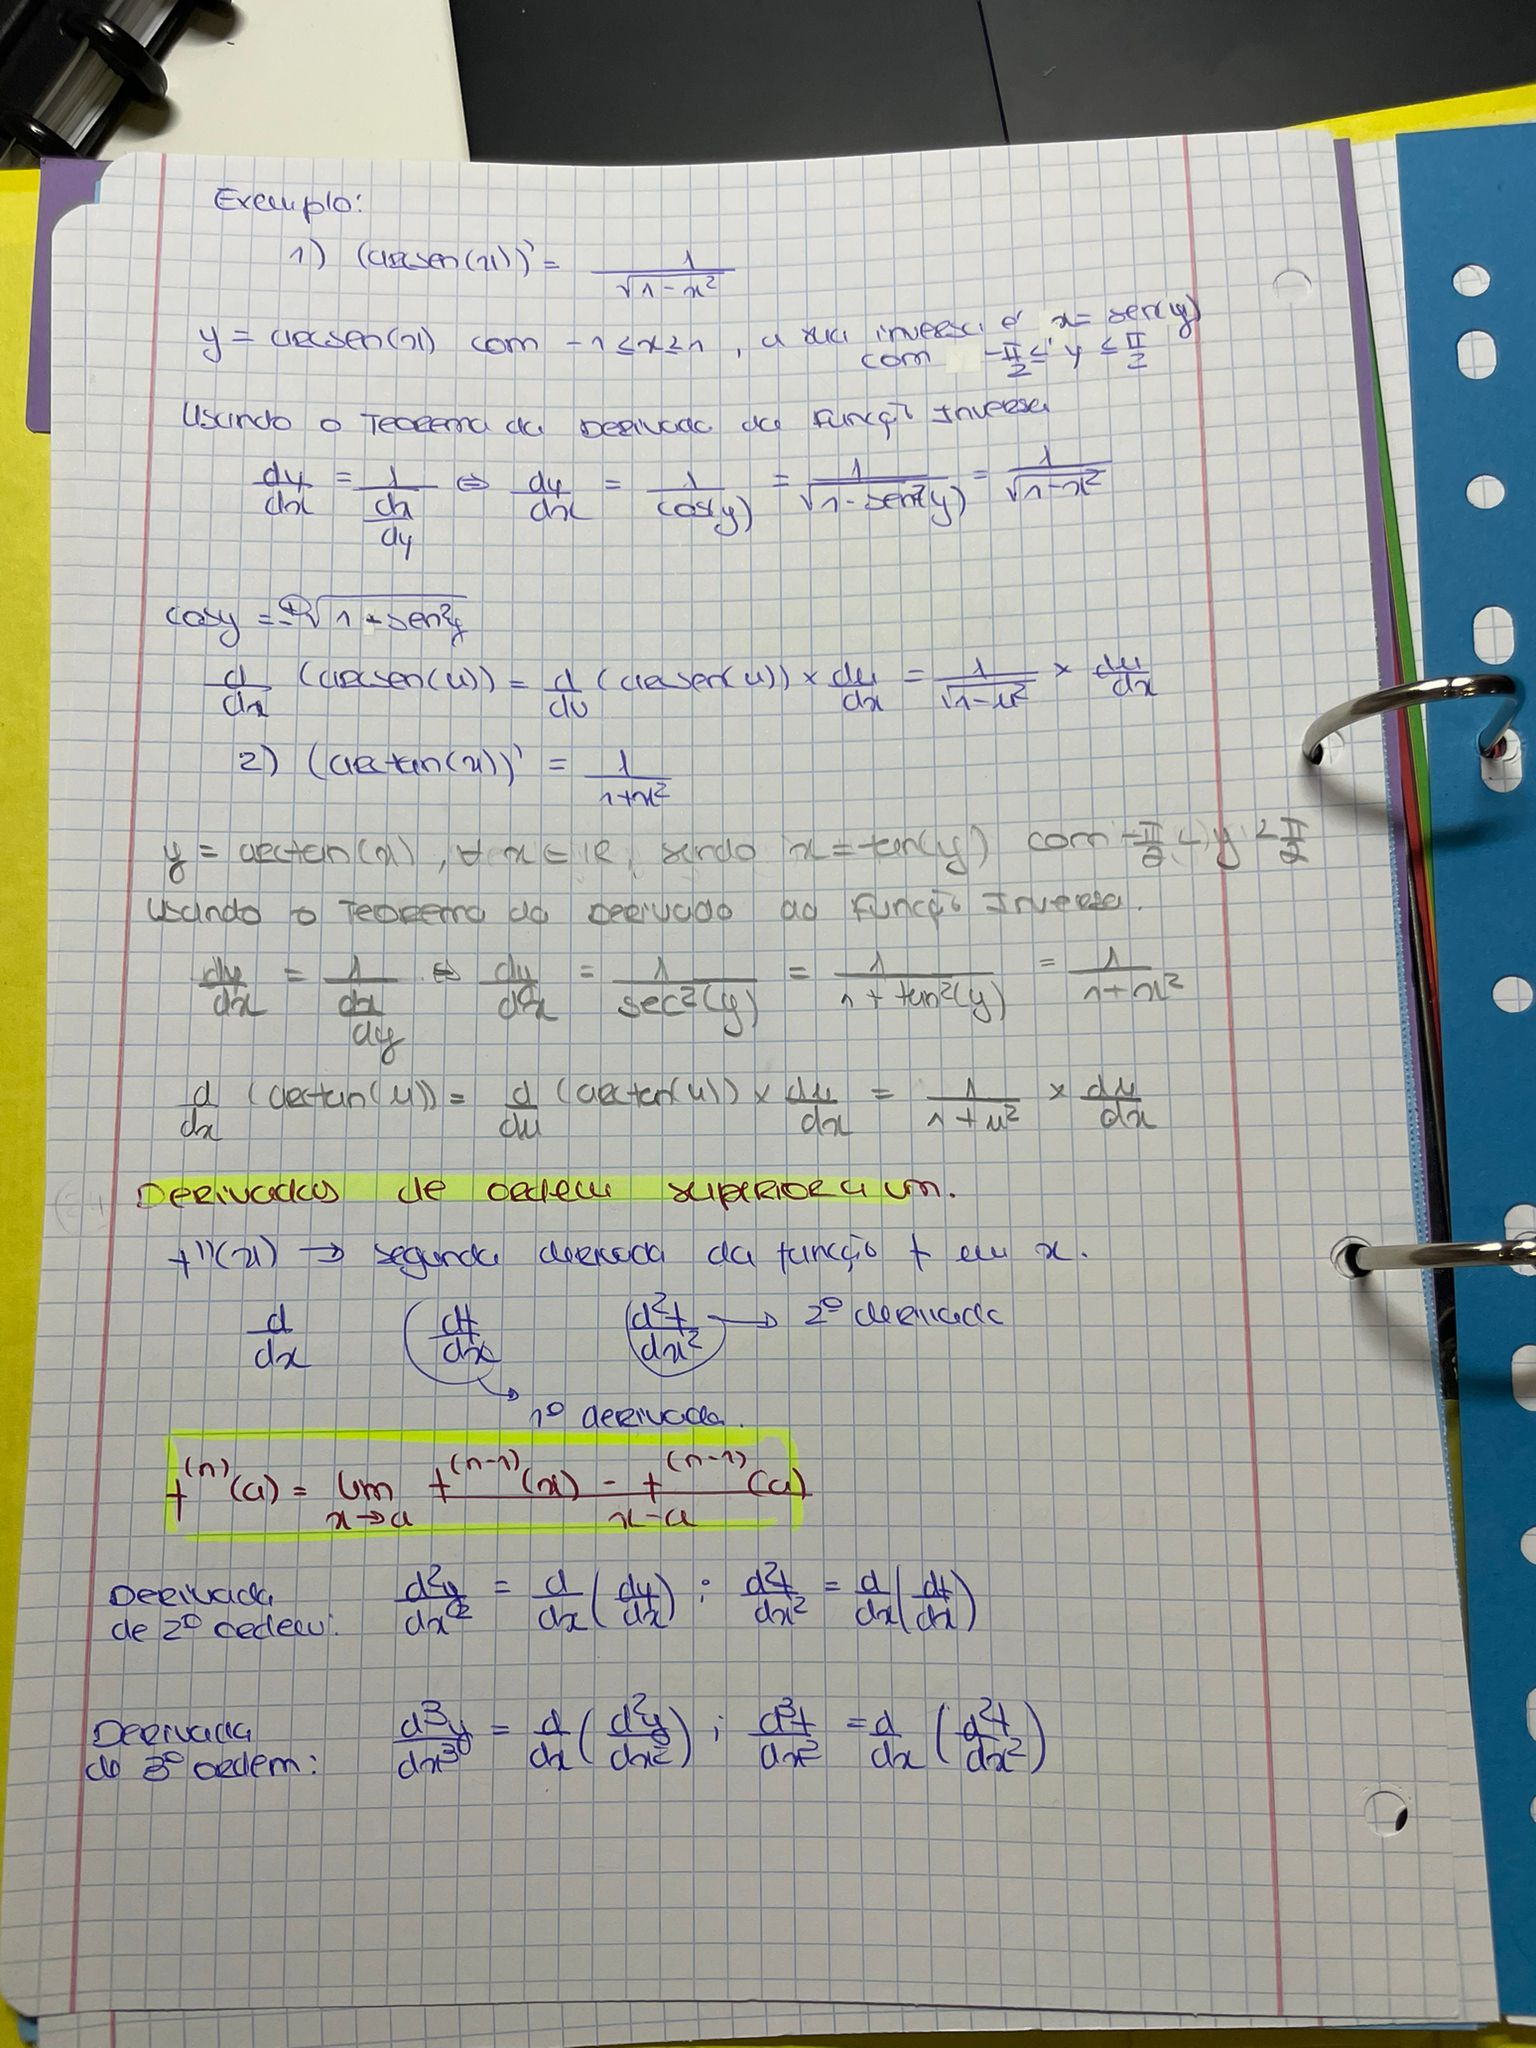 Exemplo:
1) (arcsen(x))' = 1/√(1-x²)
y = arcsen(x) com -1 ≤ x ≥ 1, a sua inversa é x = sen(y)
com -π/2 ≤ y ≤ π/2
Usando o Teorema da Derivada da Função Inversa
dy/dx = 1/(dx/dy) ⇔ dy/dx = 1/cos(y) = 1/√(1-sen²(y)) = 1/√(1-x²)
√(1-sen²y)
d/dx (arcsen(u)) = d/du (arcsen(u)) × du/dx = 1/√(1-u²) × du/dx
2) (arctan(x))' = 1/(1+x²)
y = arctan(x), ∀ x ∈ IR, sendo x = tan(y) com -π/2 < y < π/2
Usando o Teorema da Derivada da Função Inversa.
dy/dx = 1/(dx/dy) ⇔ dy/dx = 1/sec²(y) = 1/(1+tan²(y)) = 1/(1+x²)
d/dx (arctan(u)) = d/du (arctan(u)) × du/dx = 1/(1+u²) × du/dx
Derivadas de ordem superior a um.
f''(x) → segunda derivada da função f em x.
d/dx (df/dx d²f/dx² → 2º derivada
1º derivada.
f⁽ⁿ⁾(a) = lim x→a (f⁽ⁿ⁻¹⁾(x) - f⁽ⁿ⁻¹⁾(a))/(x-a)
Derivada
de 2º ordem: d²y/dx² = d/dx (dy/dx) ; d²f/dx² = d/dx (df/dx)
Derivada
de 3º ordem: d³y/dx³ = d/dx (d²y/dx²) ; d³f/dx² = d/dx (d²f/dx²)